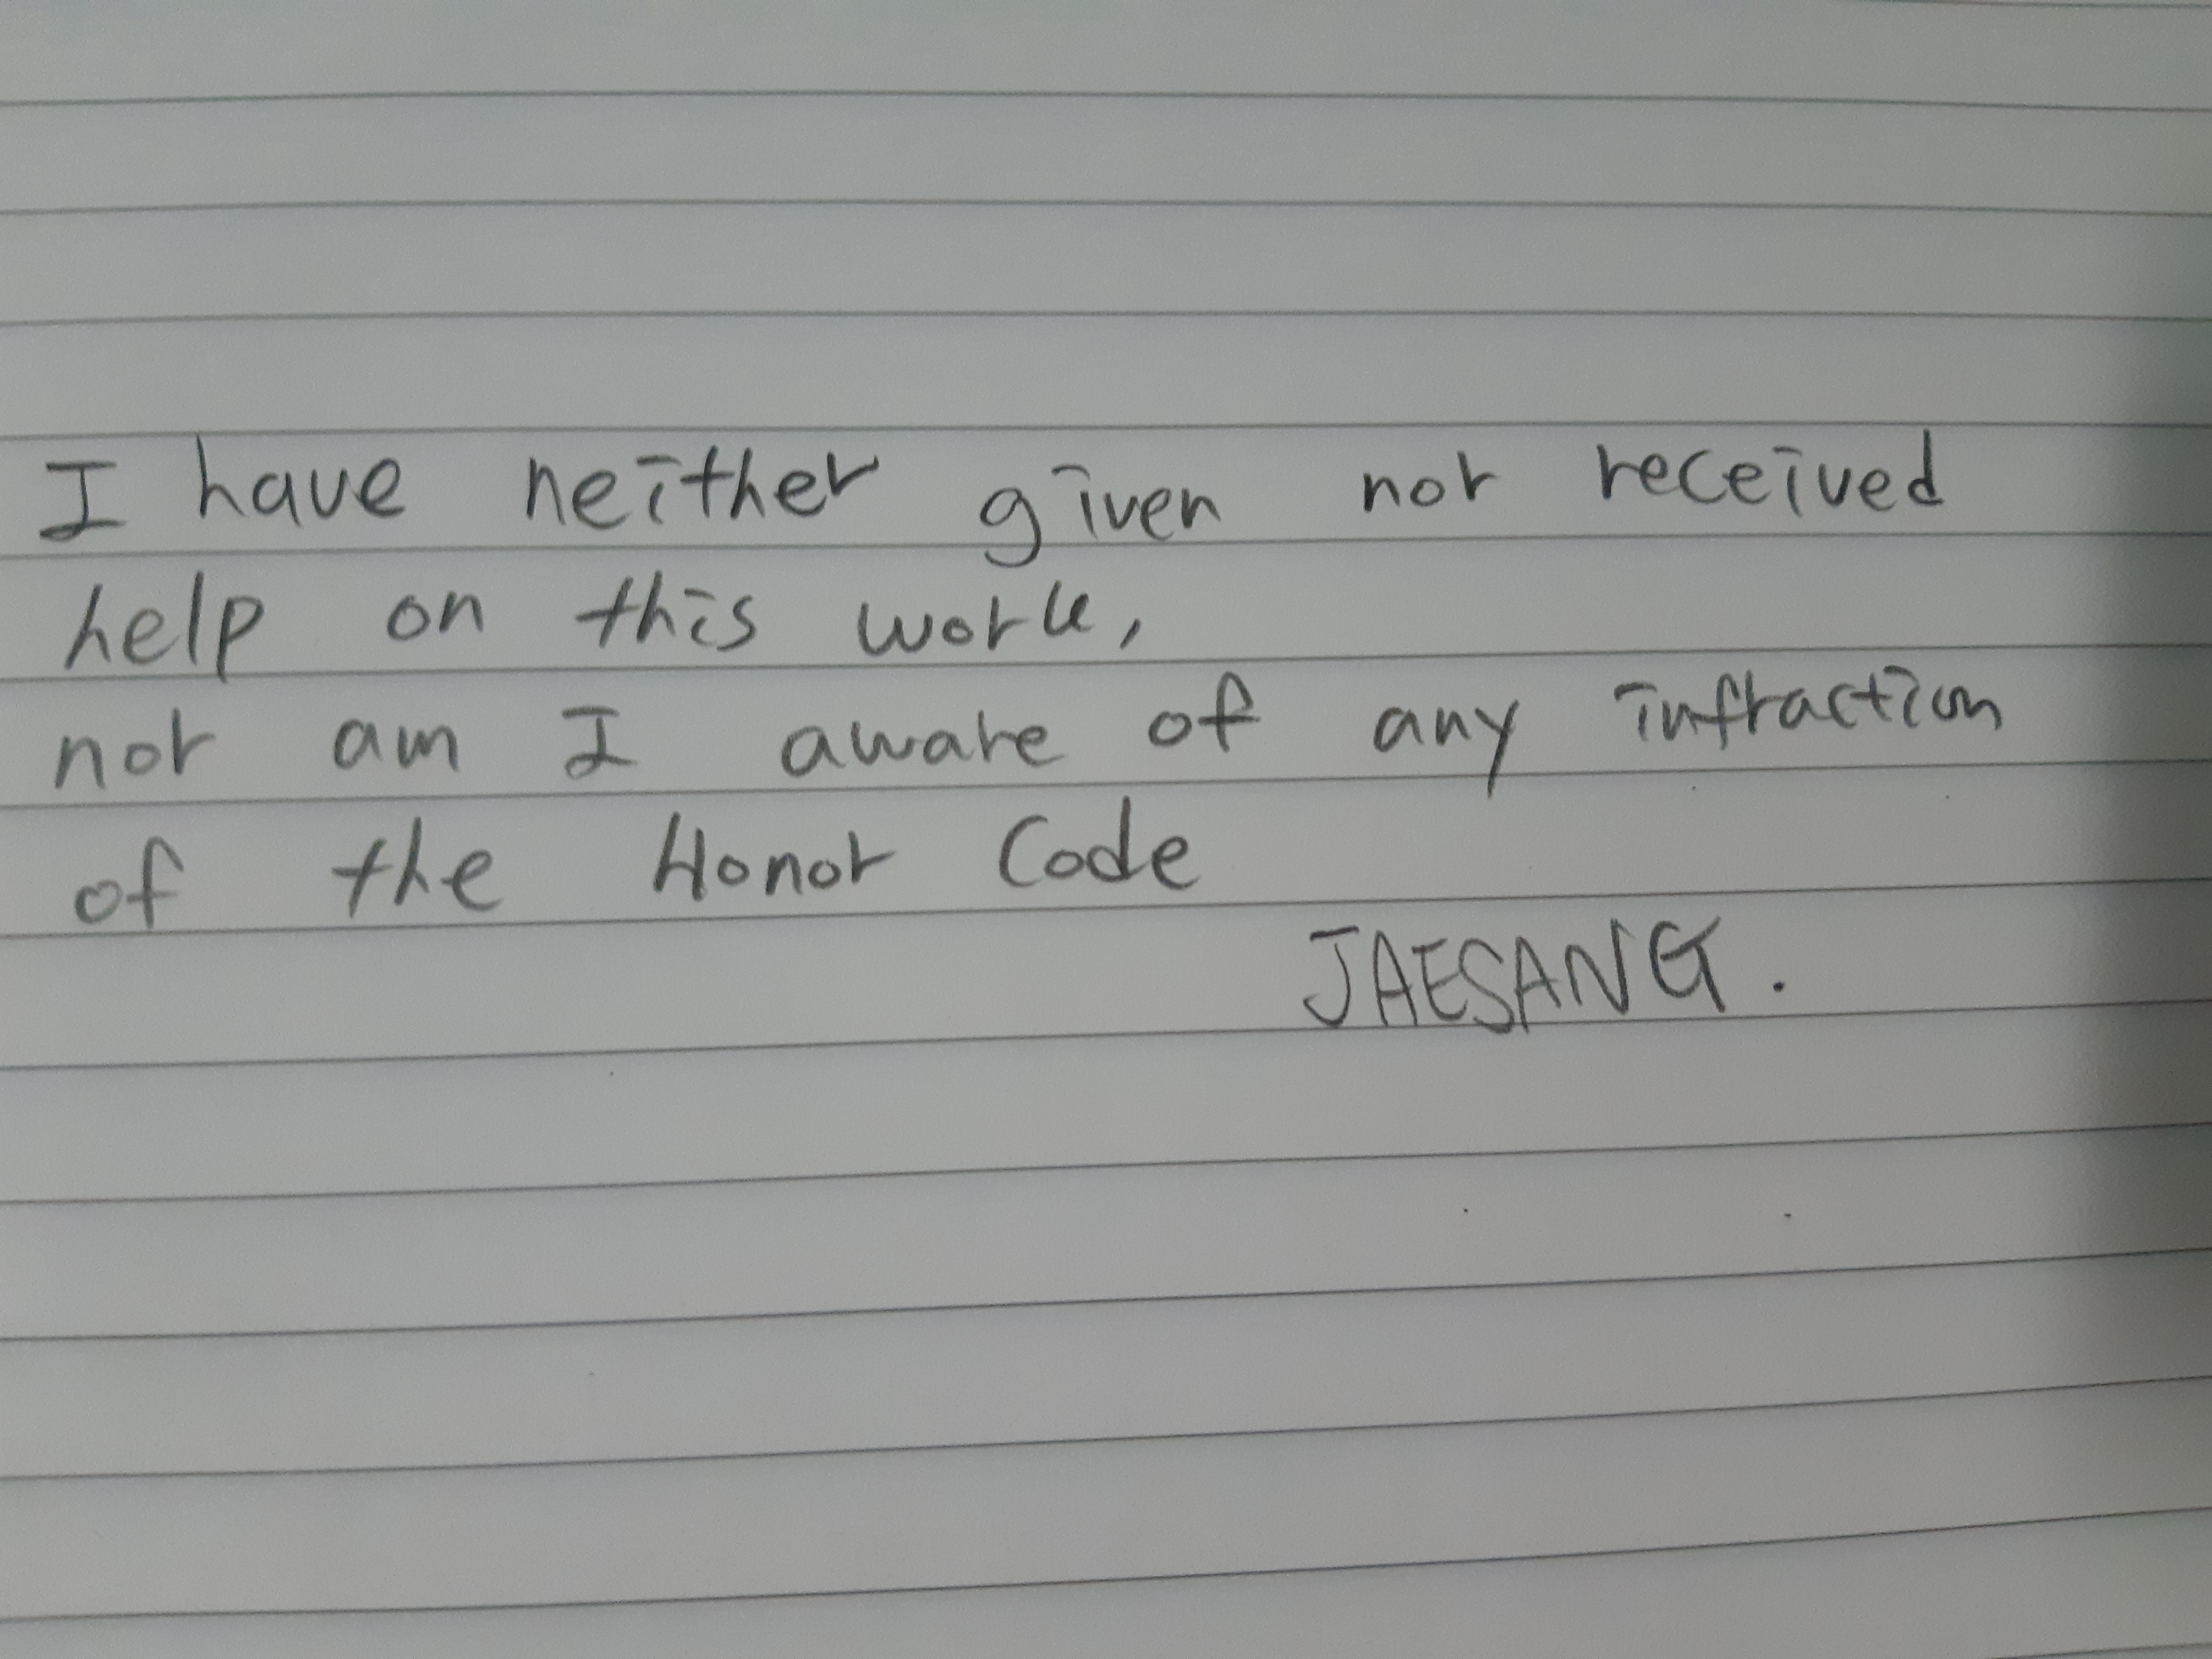 I have neither given nor received
help on this work,
nor am I aware of any infraction
of the Honor Code
JAESANG.